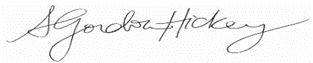 S Gordon Hickey